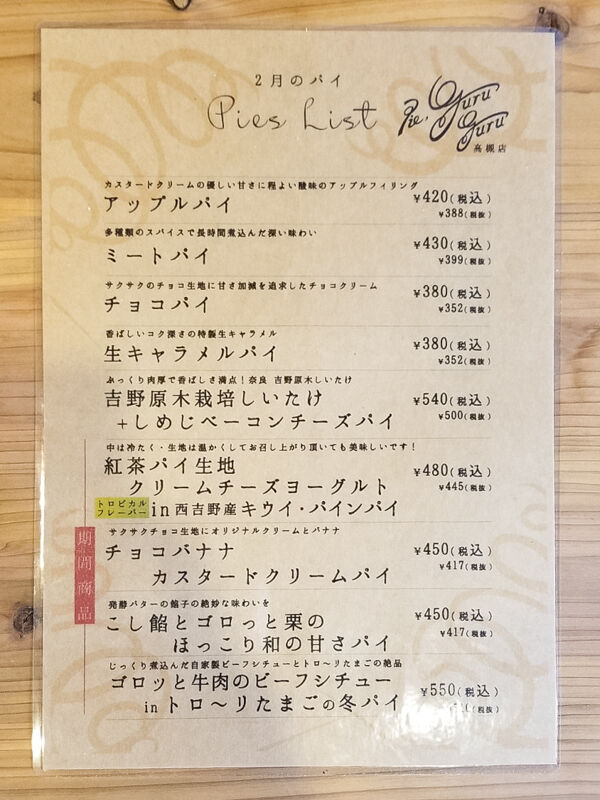 2月のパイ
Pies List
Pie. Guru Guru
高槻店
カスタードクリームの優しい甘さに程よい酸味のアップルフィリング
アップルパイ
¥420(税込)
¥388(税抜)
多種類のスパイスで長時間煮込んだ深い味わい
ミートパイ
¥430(税込)
¥399(税抜)
サクサクのチョコ生地に甘さ加減を追求したチョコクリーム
チョコパイ
¥380(税込)
¥352(税抜)
香ばしいコク深さの特製生キャラメル
生キャラメルパイ
¥380(税込)
¥352(税抜)
ぷっくり肉厚で香ばしさ満点!奈良 吉野原木しいたけ
吉野原木栽培しいたけ
+しめじベーコンチーズパイ
¥540(税込)
¥500(税抜)
中は冷たく・生地は温かくしてお召し上がり頂いても美味しいです!
紅茶パイ生地
クリームチーズヨーグルト
トロピカル
フレーバー
in西吉野産キウイ・パインパイ
¥480(税込)
¥445(税抜)
期間商品
サクサクチョコ生地にオリジナルクリームとバナナ
チョコバナナ
カスタードクリームパイ
¥450(税込)
¥417(税抜)
発酵バターの餡子の絶妙な味わいを
こし餡とゴロっと栗の
ほっこり和の甘さパイ
¥450(税込)
¥417(税抜)
じっくり煮込んだ自家製ビーフシチューとトロ〜リたまごの絶品
ゴロッと牛肉のビーフシチュー
inトロ〜リたまごの冬パイ
¥550(税込)
(税抜)